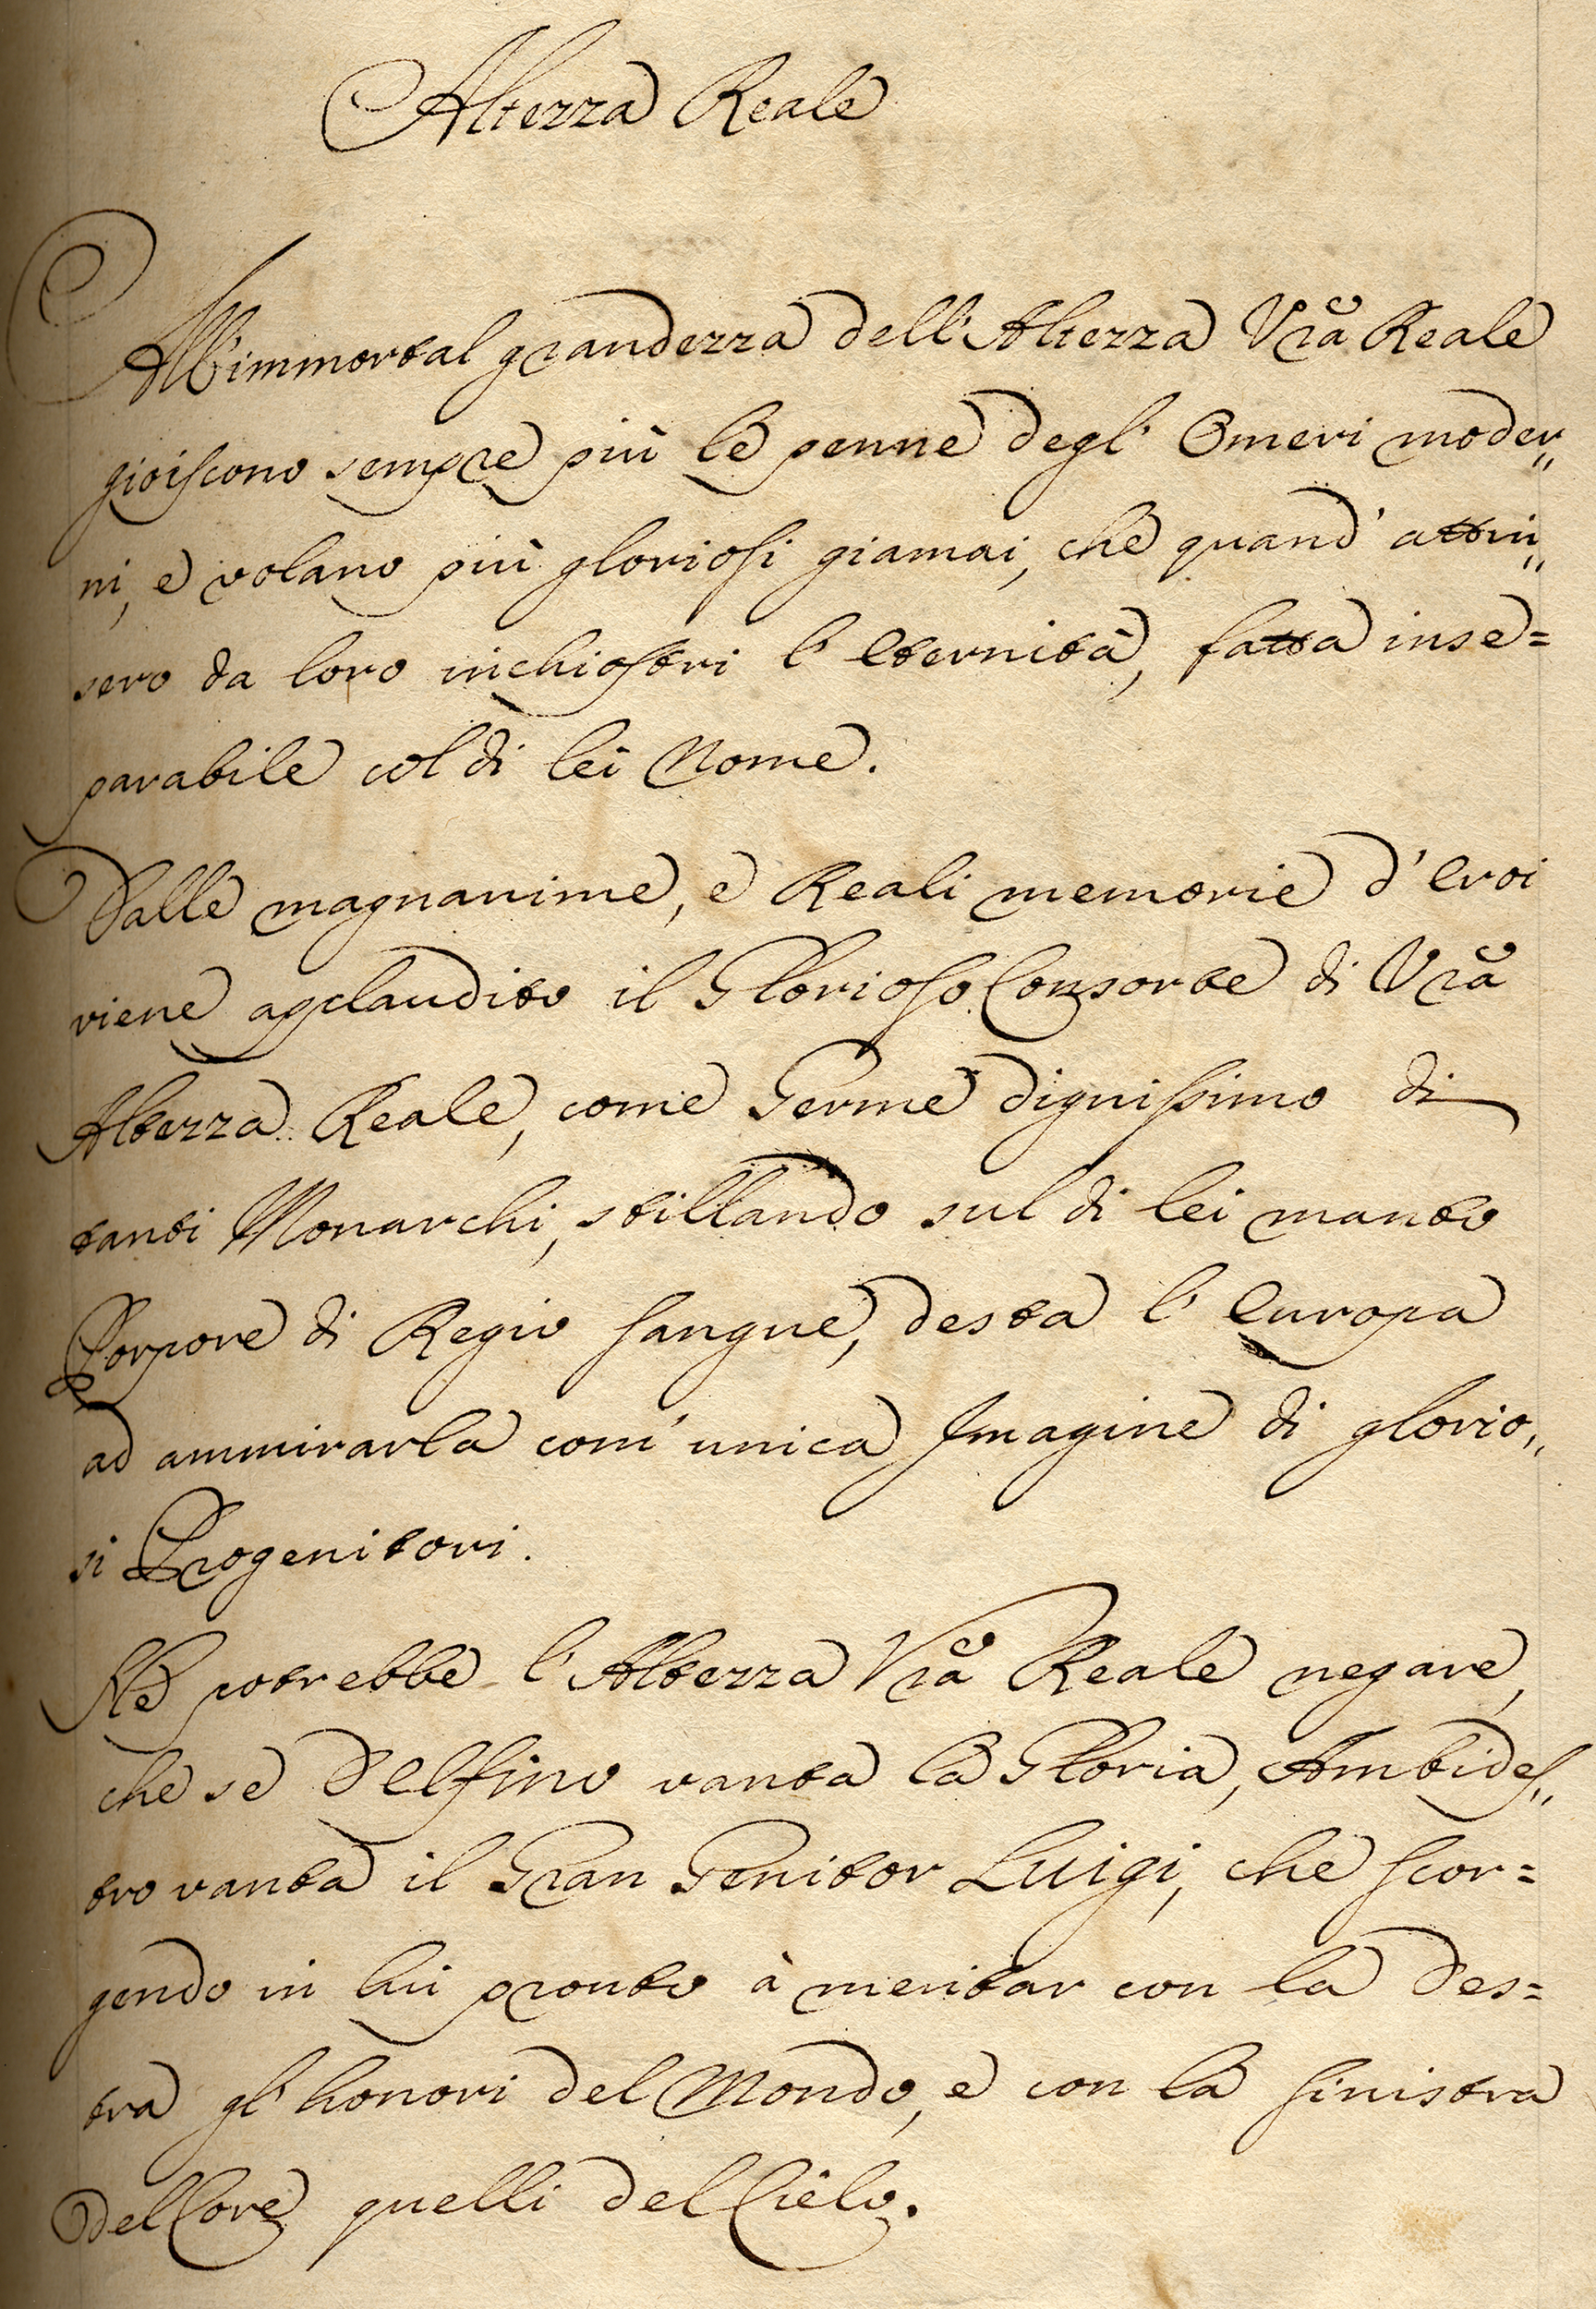 Altezza Reale
All'immortal grandezza dell'Altezza Vrã Reale
gioiscono sempre più le penne degl' Omeri moder„
ni, e volano più gloriosi giamai, che quand' attin„
sero da loro inchiostri l' Eternità, fatta inse=
parabile col di lei Nome.
Dalle magnanime, e Reali memorie d' Eroi
viene applaudito il Glorioso Consorte di Vrã
Altezza Reale, come Germe dignissimo di
tanti Monarchi, stillando sul di lei manto
Porpore di Regio sangue, desta l' Europa
ad ammirarla com' unica Imagine di glorio„
si Progenitori.
Nè potrebbe l'Altezza Vrã Reale negare,
che se Delfino vanta la Gloria, Ambides„
tro vanta il Gran Genitor Luigi, che scor=
gendo in lui pronto à meritar con la Des=
tra gl' honori del Mondo, e con la sinistra
del Core quelli del Cielo.